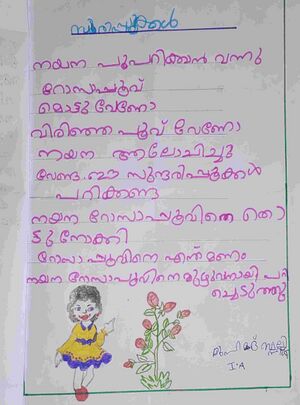 സുന്ദരിപ്പൂക്കൾ
നയന പൂപറിക്കാൻ വന്നു
റോസാപ്പൂവ്
മൊട്ടു വേണോ
വിരിഞ്ഞ പൂവ് വേണോ
നയന ആലോചിച്ചു
വേണ്ട ഈ സുന്ദരിപ്പൂക്കൾ
പറിക്കണ്ട
നയന റോസാപ്പൂവിനെ തൊ
ട്ടു നോക്കി
റോസാപ്പൂവിനെ എന്ത് മണം
നയന റോസാപൂവിനെ മുഴുവനായി പറി
ച്ചെടുത്തു
മുഹമ്മദ്
I A